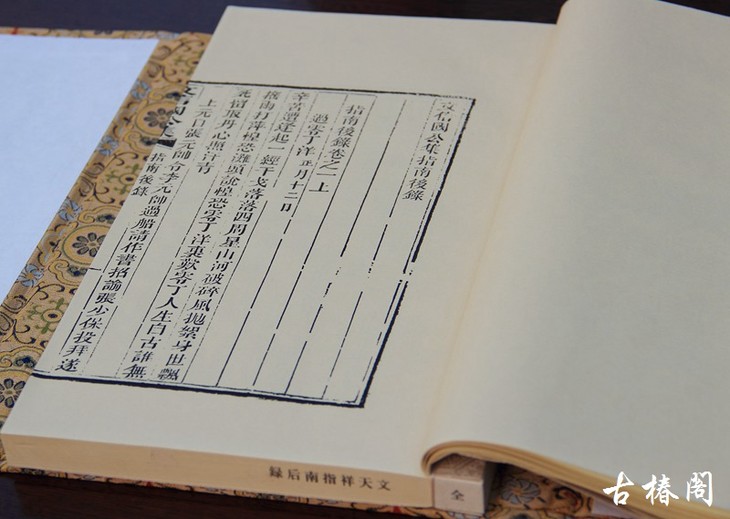 文信國公集指南後錄
指南後錄卷之一上
過零丁洋 正月十二日
辛苦遭逢起一經干戈落落四周星山河破碎風拋絮身世飄
搖雨打萍惶恐灘頭說惶恐零丁洋裏歎零丁人生自古誰無
死留取丹心照汗青
上元日張元帥令李元帥過船請作書招諭張少保投拜遂
指南後錄
文天祥指南后録
全
古椿閣